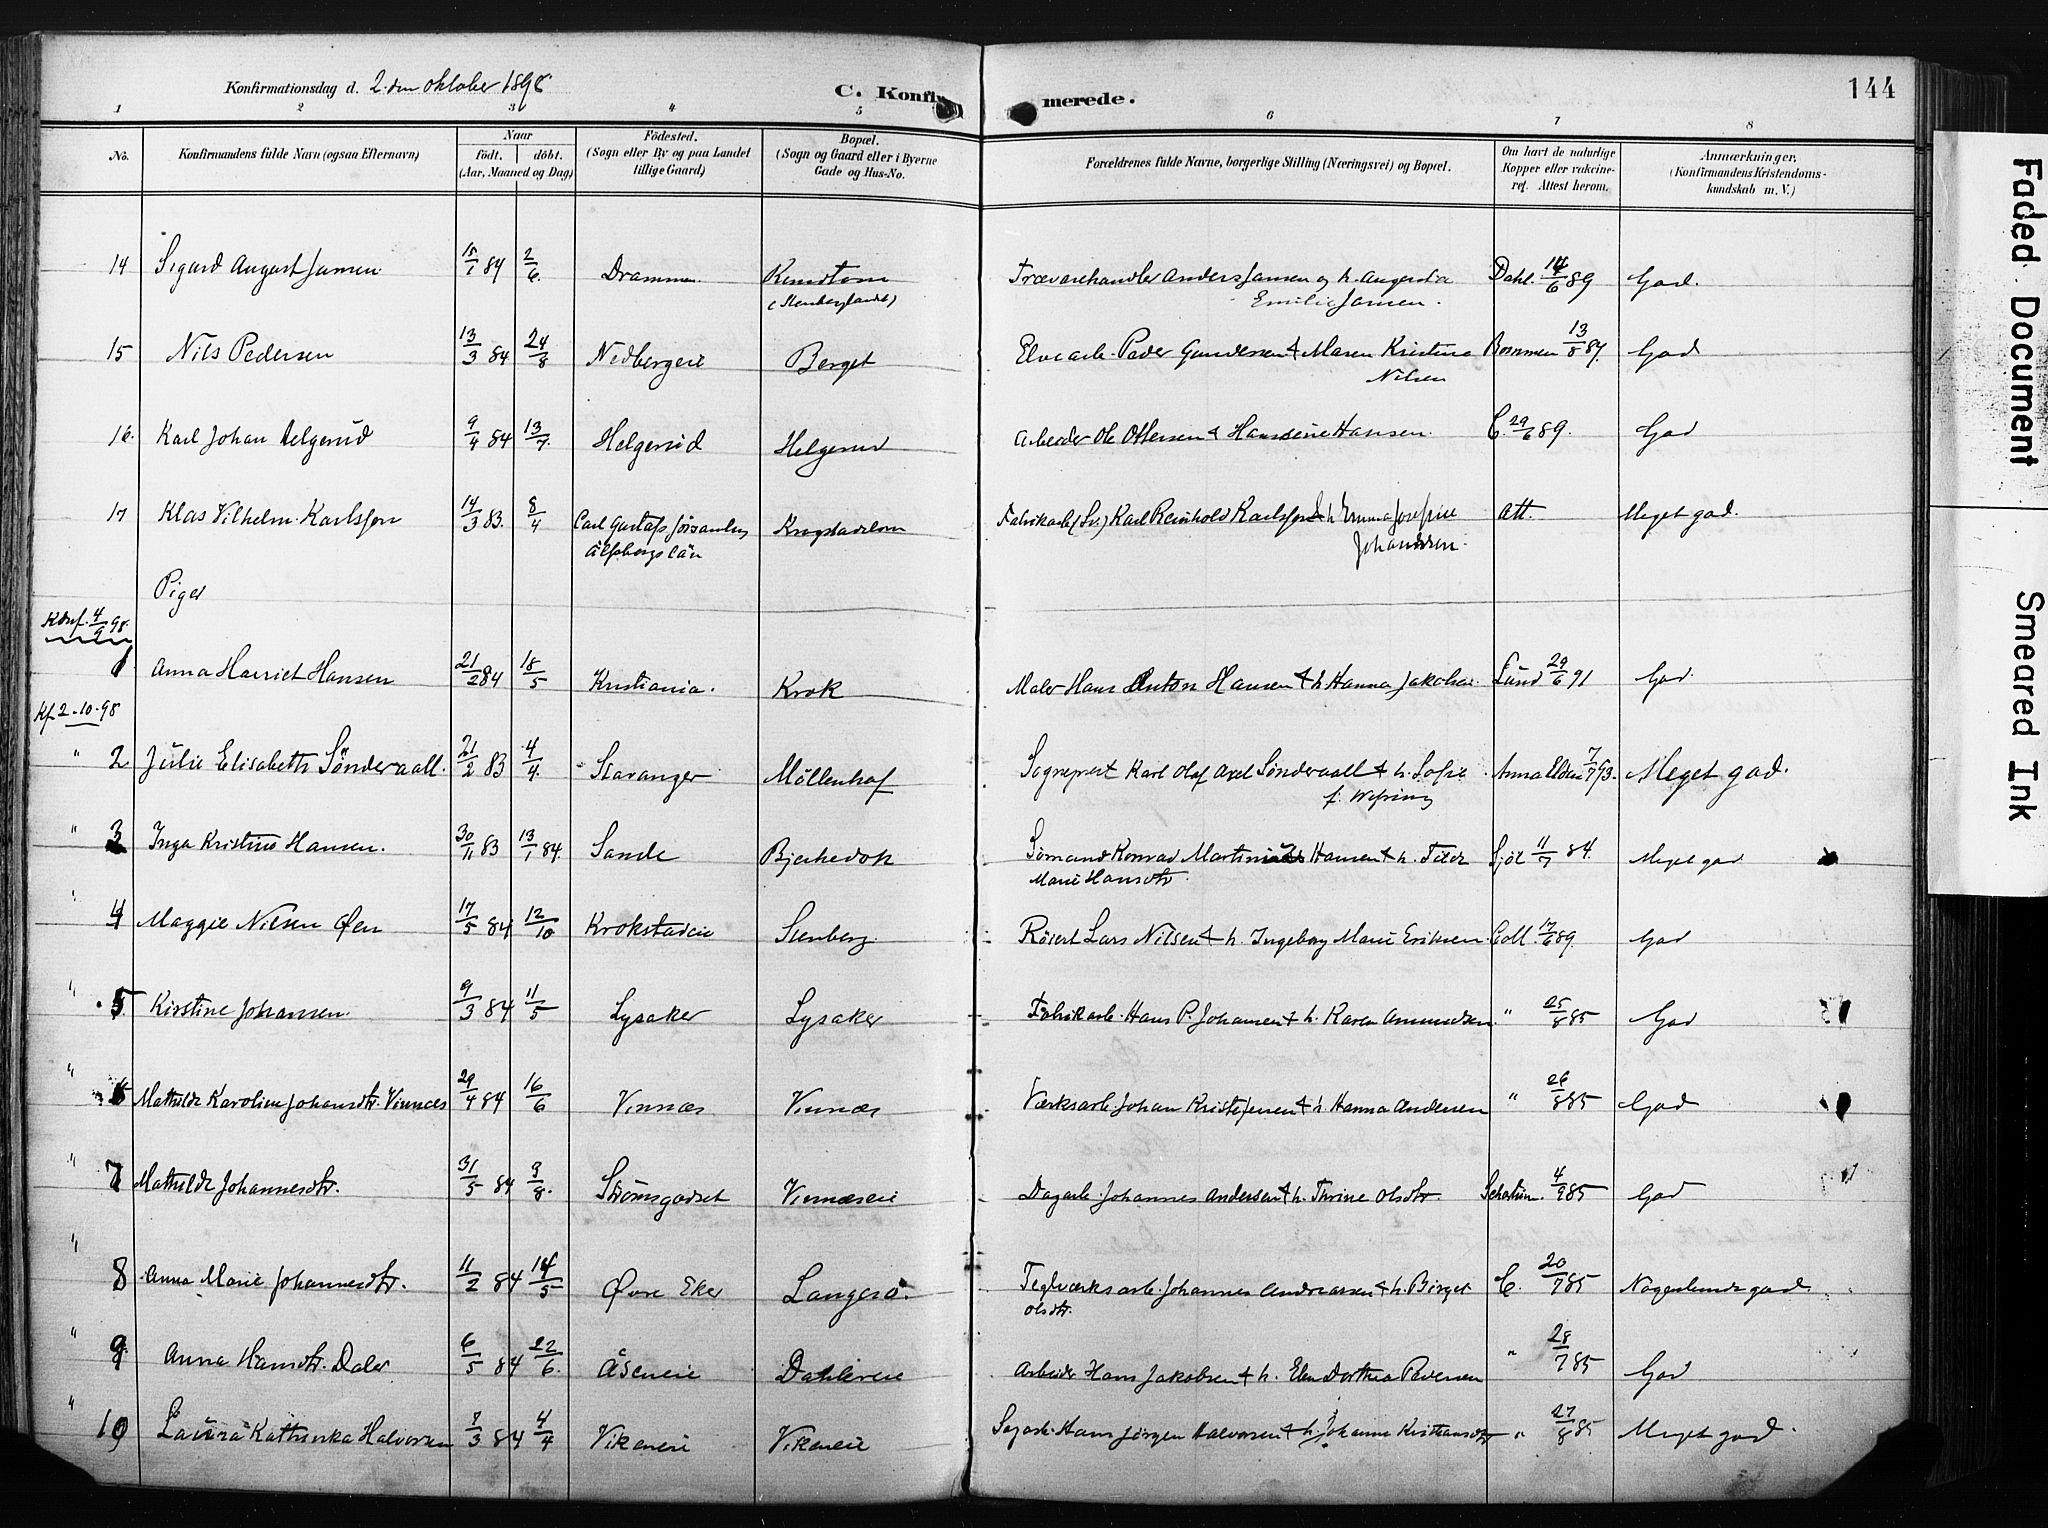 Konfirmationsdag d. 2. den oktober 1898
C. Konfirmerede.
144
1 2 3 4 5 6 7 8
No. Konfirmandens fulde Navn (ogsaa Efternavn) Naar födt. döbt. (Aar, Maaned og Dag) Födested. (Sogn eller By og paa Landet tillige Gaard) Bopæl. (Sogn og Gaard eller i Byerne Gade og Hus-No. Forældrenes fulde Navne, borgerlige Stilling (Næringsvei) og Bopæl. Om havt de naturlige Kopper eller vakcineret. Attest herom. Anmærkninger, (Konfirmandens Kristendomskundskab m. V.)
14 Sigurd August Jansen 15/1 84 2/6 Drammen (Stenberglandet) Trævarehandler Anders Jansen og h. Augusta Emilie Jansen. Dahl. 14/6 89 God.
15 Nils Pedersen 13/3 84 24/8 Nedbergeie Berget Elvearb. Peder Gundersen & Maren Kristine Nilsen 13/8 87. God
16. Karl Johan Helgerud 9/4 84 13/7. Helgerud Helgerud Arbeider Ole Ottersen & Hansine Hansen. C. 29/6 89. God
17 Klas Vilhelm Karlsson 14/3 83. 8/4 Carl Gustafs församling Älfsborgs län Fabrikarb. (Sv.) Karl Reinhold Karlsson & h. Emma Josefine Johansson. Att. Meget god.
Piger
Konf. 4/9 98.
1 Anna Harriet Hansen 21/2 84 18/5 Kristiania. Krok Maler Hans Anton Hansen & h. Hanna Jakobsen Lund 29/6 91 God.
Kf. 2-10-98
" 2 Julie Elisabeth Sönderaall. 21/2 83 4/4. Stavanger Möllenhof Sogneprest Karl Olaf Axel Sönderaall & h. Sofie f. Wefring Anna Elden 7/7 93. Meget god.
" 3 Inga Kristine Hansen. 30/11 83 13/1 84. Sande Bjerkedok Sömand Konrad Martin Hansen & h. Marie Hansdtr. 11/7 84. Meget god
" 4 Maggie Nilsen Øen 17/5 84 12/10 Krokstadeie Stenberg Lars Nilsen & h. Ingeborg Marie Eriksen. 17/6 89. God
" 5 Kirstine Johansen. 9/3 84 11/5 Lysaker Lysaker Fabrikarb. Hans P. Johansen & h. Karen Amundsen. " 25/8 85 God
" 6 Mathilde Karoline Johansdtr. Vinnæs 29/4 84 16/6 Vinnæs Vinnæs Værksarb. Johan Kristofersen & h. Hanna Andersen " 26/8 85 God
" 7 Mathilde Johannesdtr. 31/5 84 3/8. Strömsgodset Vinnæseie Dagarb. Johannes Andersen & h. Thrine Olsdtr. 4/9 85 God
" 8 Anna Marie Johannesdtr. 11/2 84 14/5 Øvre Eker Langesö. Teglværksarb. Johannes Andreassen & h. Birget Olsdtr. C. 20/7 85 Nogenlunde god.
" 9 Anna Hansdtr. Daler 6/5 84 22/6. Åseneie Dahlereie Arbeider Hans Jakobsen & h. Elen Dorthea Pedersen " 28/7 85 God
" 10 Laura Kathinka Halvorsen 7/3 84 4/4 Vikeneie Vikeneie Sagarb. Hans Jörgen Halvorsen & h. Johanne Kristiansdtr. " 27/8 85 Meget god.
Faded Document
Smeared Ink